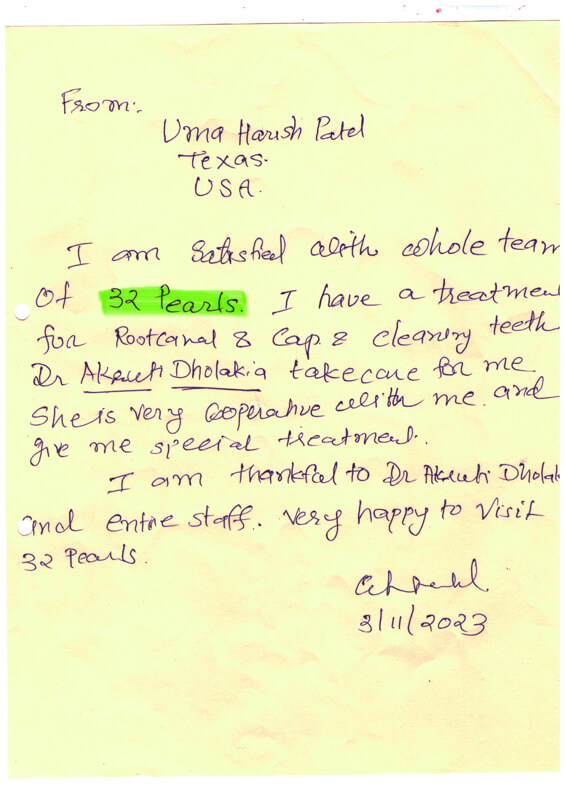 From:-
Uma Harish Patel
Texas.
USA.
I am satisfied with whole team
Of 32 Pearls. I have a treatmen
for Rootcanal & Cap & cleaning teeth
Dr Akruti Dholakia takecare for me
She is very Cooperative with me and
give me special treatment.
I am thankful to Dr Akruti Dholak
and entire staff. very happy to visit
32 Pearls.
3/11/2023